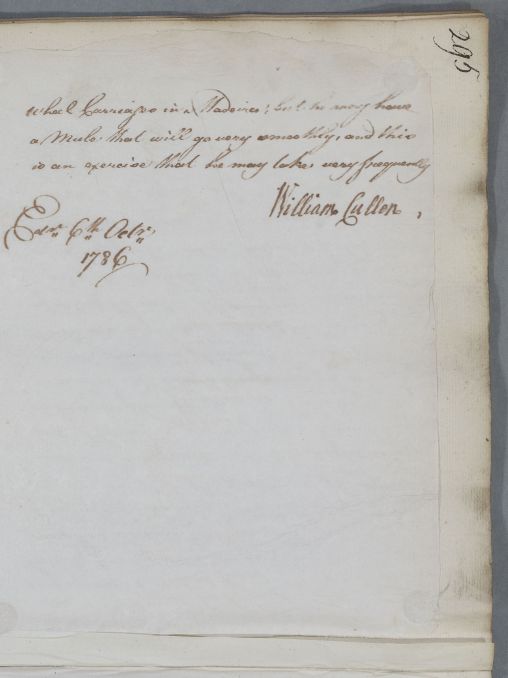 295
wheel Carriages in Madeira; but he may have
a Mule that will go very smoothly, and this
is an exercise that he may take very frequently
William Cullen.
Edinr. 6th. Octr.
1786